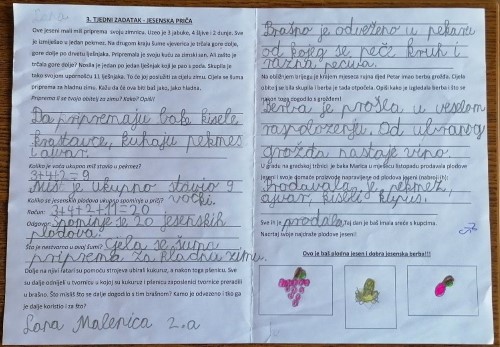 3. TJEDNI ZADATAK - JESENSKA PRIČA
Ove jeseni mali miš priprema svoju zimnicu. Uzeo je 3 jabuke, 4 šljive i 2 dunje. Sve
je izmiješao u jedan pekmez. Na drugom kraju šume vjeverica je trčala gore dolje,
gore dolje po drveću tražeći žir. Pripremala je zemju za zimski san. Ali zašto je
trčala gore dolje? Nosila je jedan po jedan lješnjak koji je pao s poda. Skupila je
tako svojom upornošću 11 lješnjaka. To će joj poslužiti za cijelu zimu. Cijela se šuma
priprema za hladnu zimu. Kažu da će ova biti baš jako, jako hladna.
Priprema li se tvoja obitelj za zimu? Kako? Opiši!
Da pripremaju baka kisele
krastavce, kuhaju pekmez
i ajvar.
Koliko je voća ukupno miš stavio u pekmez?
3+4+2=9
Miš je ukupno stavio 9
voćki.
Koliko se jesenskih plodova ukupno spominje u priči?
Račun: 3+4+2+11=20
Odgovor: Spominje je 20 jesenskih
plodova.
Što je nestvarno u ovoj šumi? Cijela se šuma
priprema za hladnu zimu.
Dalje na njivi ratari su pomoću strojeva ubirali kukuruz, a nakon toga plenicu. Sve
su dalje odnijeli u tvornicu u kojoj su kukuruz i pšenicu zaposlenici tvornice preradili
u brašno. Što misliš što se dalje dogodilo s tim brašnom? Kamo je odvezeno i tko ga
je dalje koristio i za što?
Lana Malenica 2.a
Brašno je odveženo u pekaru
od kojeg se peče kruh i
razna peciva.
Na obližnjem brijegu je krajem mjeseca rujna djed Petar imao berbu grožđa. Cijela
obitelj se bila skupila i berba je sada otpočela. Opiši kako je izgledala berba i što se
nakon toga dogodilo s grožđem!
Berba je prošla u veselom
raspoloženju. Od ubranog
grožđa nastaje vino.
U gradu na gradskoj tržnici je baka Marica u mjesecu listopadu prodavala plodove
jeseni i svoje domaće proizvode napravljene od plodova jeseni (nabroji ih):
Prodavala je pekmez,
ajvar, kiseli kupus.
Sve ih je prodala. Taj dan je baš imala sreće s kupcima.
Nacrtaj svoje najdraže plodove jeseni!
Ovo je baš plodna jesen i dobra jesenska berba!!!